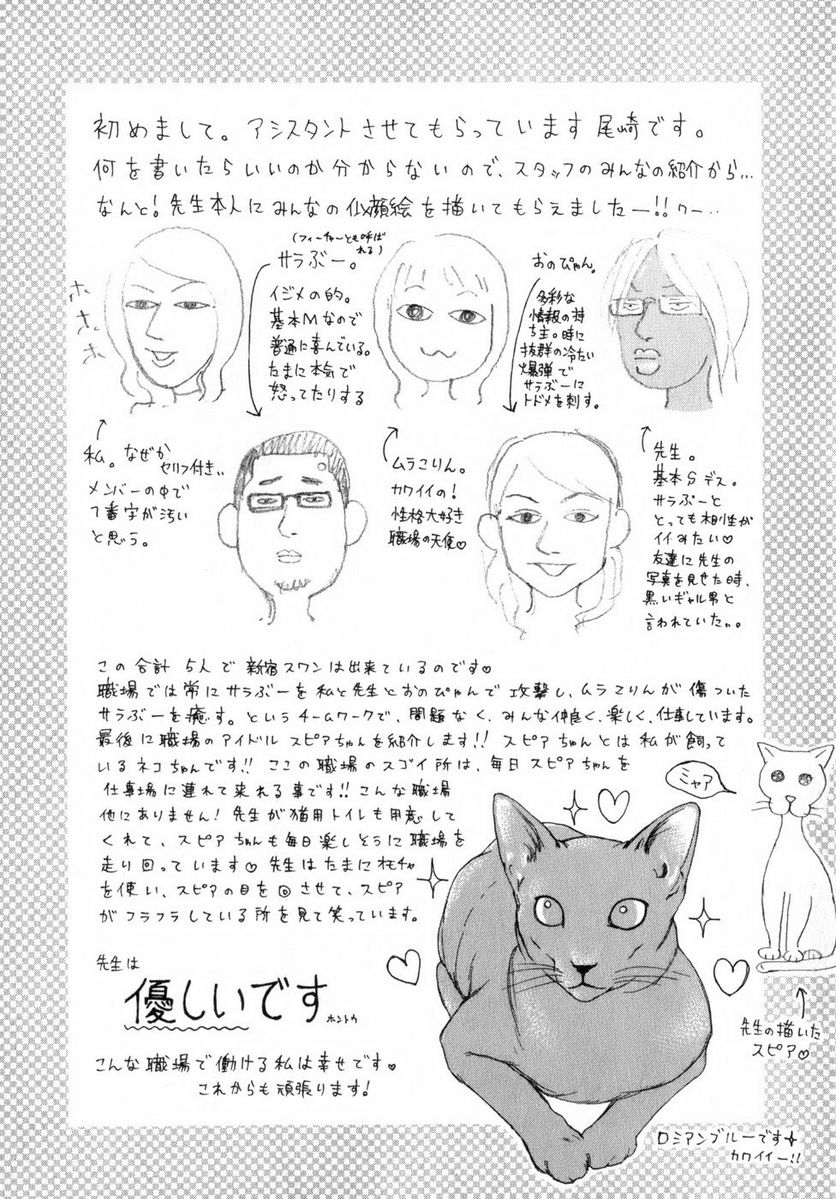 初めまして。アシスタントさせてもらっています尾崎です。
何を書いたらいいのか分からないので、スタッフのみんなの紹介から…
なんと!先生本人にみんなの似顔絵を描いてもらえましたー!!ワー…
ホホホ
私。なぜか
セリフ付き…
メンバーの中で
1番字が汚い
と思う。
(フィーチャーとも呼ば
れる)
サラぶー。
イジメの的。
基本Mなので
普通に喜んでいる。
たまに本気で
怒ってたりする
ムラこりん。
カワイイの!
性格大好き
職場の天使♡
おのぴゃん。
多彩な
情報の持
ち主。時に
抜群の冷たい
爆弾で
サラぶーに
トドメを刺す。
先生。
基本Sデス。
サラぶーと
とっても相性が
イイみたい♡
友達に先生の
写真を見せた時、
黒いギャル男と
言われていた。
この合計5人で新宿スワンは出来ているのです♡
職場では常にサラぶーを私と先生とおのぴゃんで攻撃し、ムラこりんが傷ついた
サラぶーを癒す。というチームワークで、問題なく、みんな仲良く、楽しく、仕事しています。
最後に職場のアイドル スピアちゃんを紹介します!! スピアちゃんとは私が飼って
いるネコちゃんです!! ここの職場のスゴイ所は、毎日スピアちゃんを
仕事場に連れて来れる事です!! こんな職場
他にありません! 先生が猫用トイレも用意して
くれて、スピアちゃんも毎日楽しそうに職場を
走り回っています♡ 先生はたまにオモチャ
を使い、スピアの目を◎させて、スピア
がフラフラしている所を見て笑っています。
先生は
優しいです
ホントウ
こんな職場で働ける私は幸せです♡
これからも頑張ります!
ミャア
先生の描いた
スピア♡
ロシアンブルーです
カワイイー!!